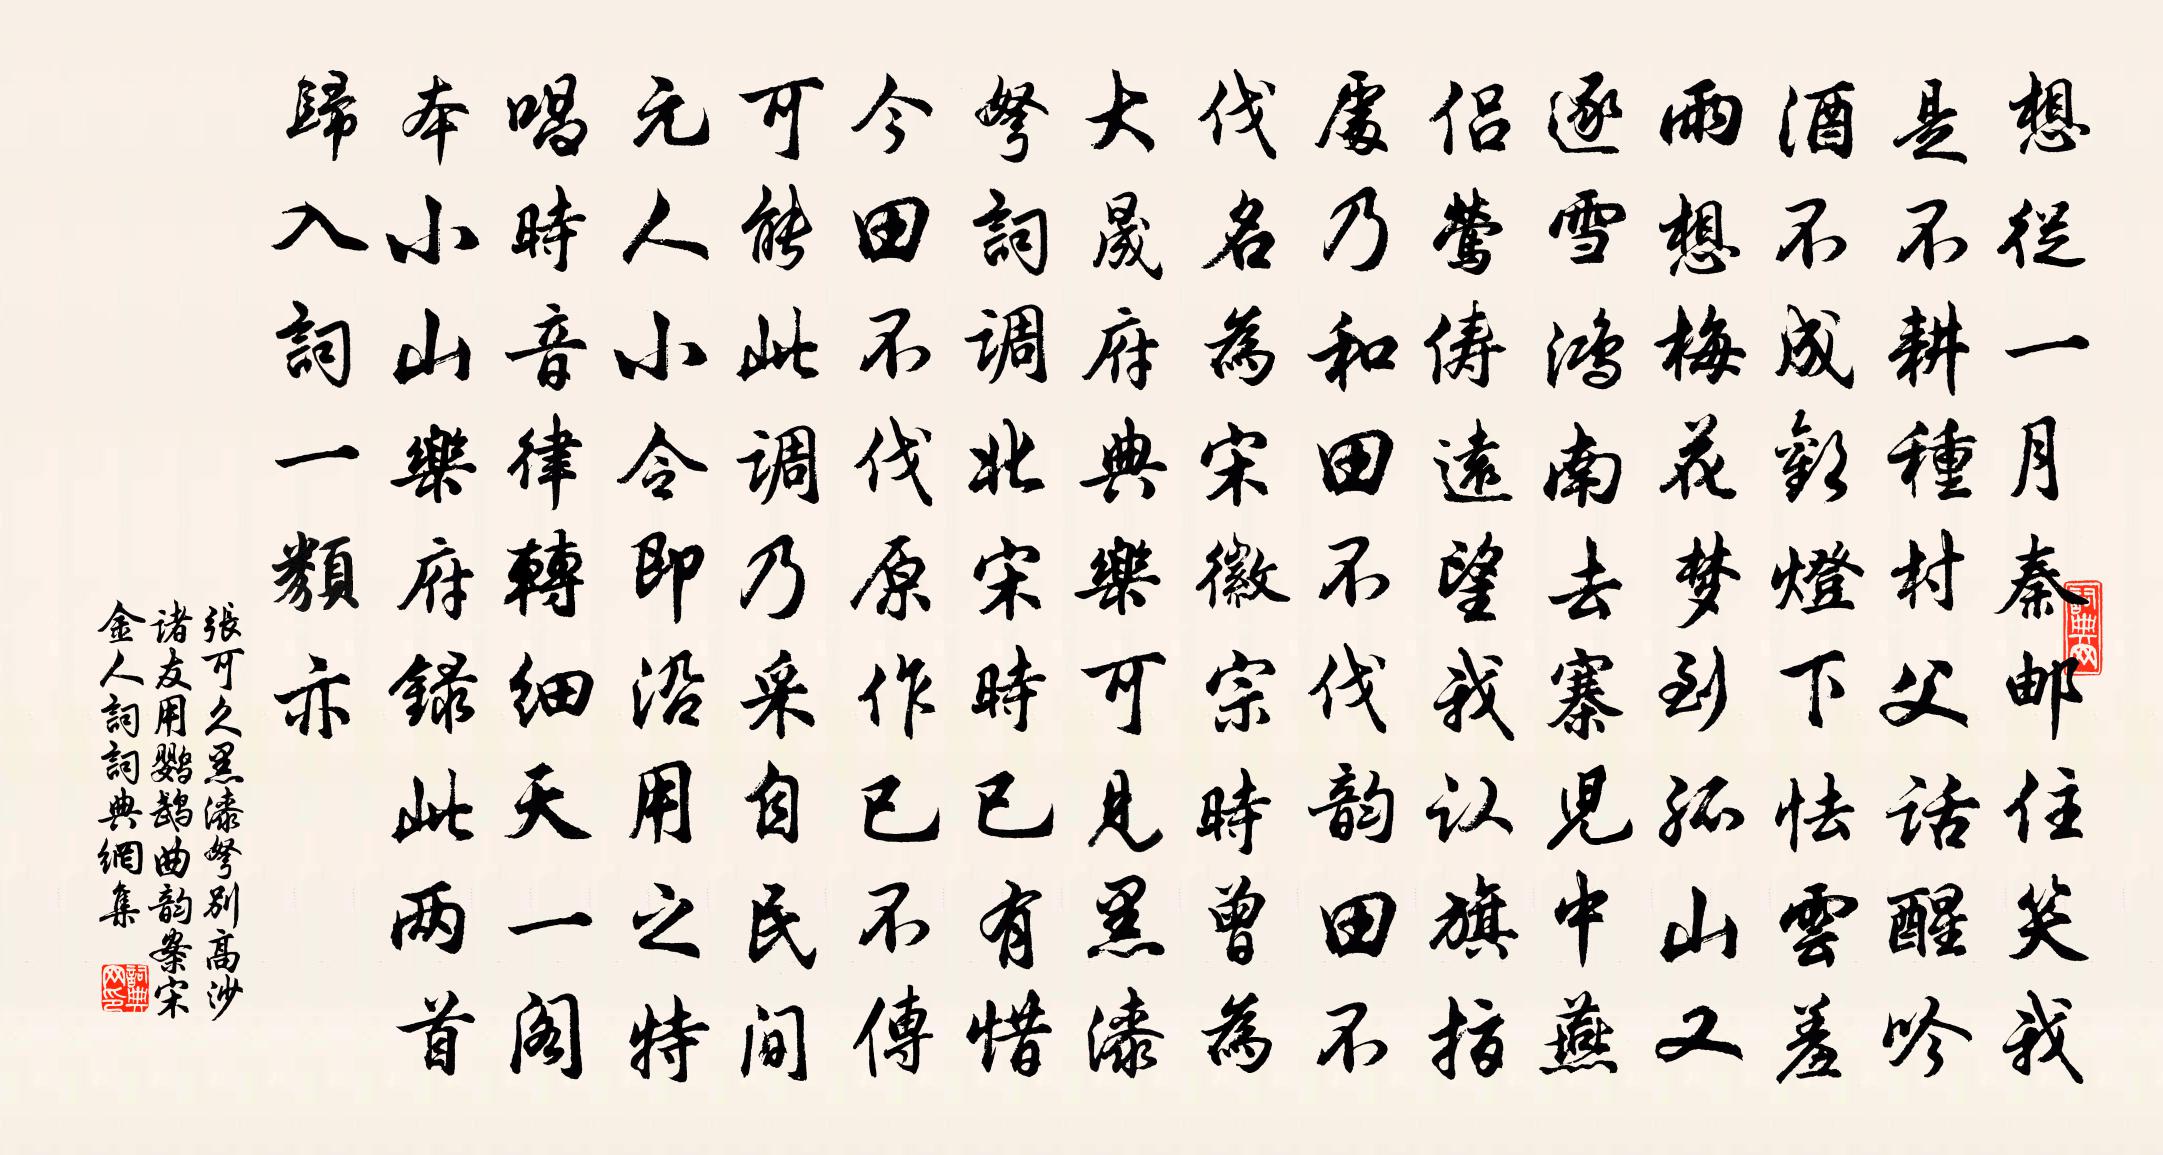 想從一月秦邮住笑我
是不耕種村父話醒吟
酒不成歡燈下怯雲羞
雨想梅花梦到孤山又
逐雪鸿南去寨児中燕
侣鶯儔遠望我认旗指
處乃和田不伐韵田不
伐名為宋徽宗時曾為
大晟府典樂可見黑漆
弩詞调北宋時已有惜
今田不伐原作已不傳
可能此调乃采自民间
元人小令即沿用之特
唱時音律轉细天一阁
本小山樂府録此两首
歸入詞一類亦
張可久黑漆弩别高沙
诸友用鹦鹉曲韵案宋
金人詞詞典網集
詞典网
詞典网印